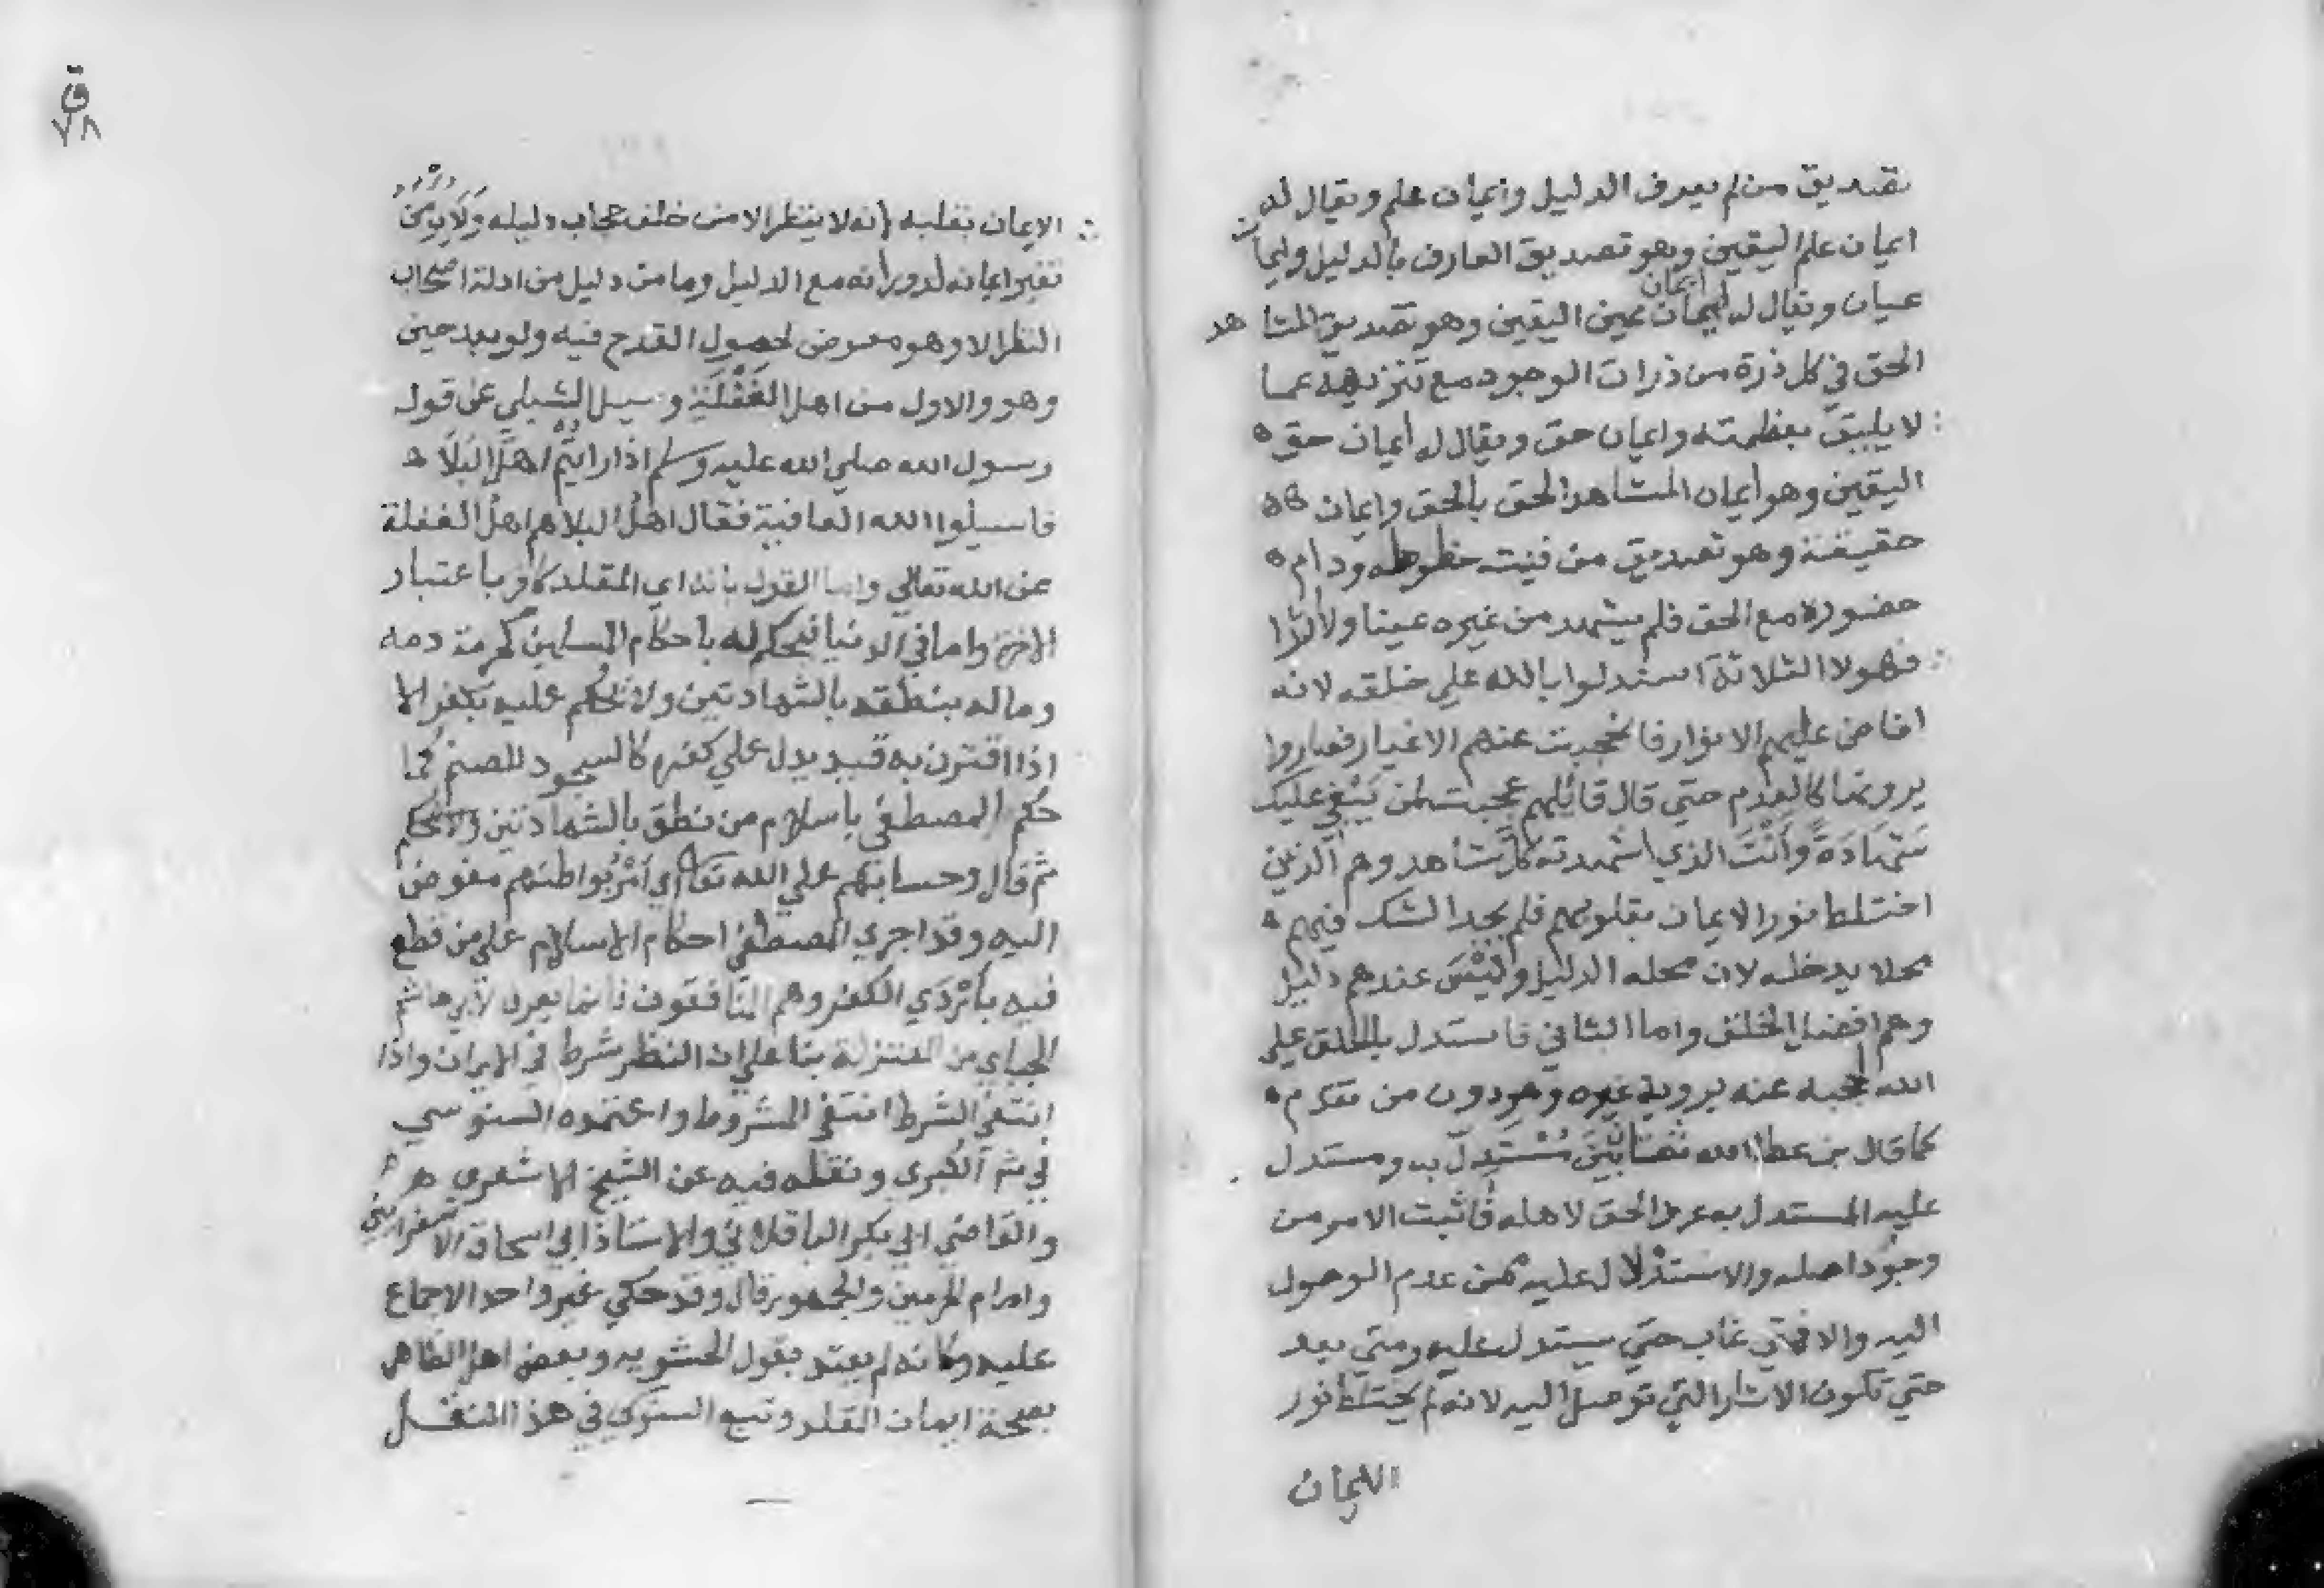 تصديق من لم يعرف الدليل وايمان علم ويقال له
ايمان علم اليقين وهو تصديق العارف بالدليل وايمان
عيان ويقال له ايمان عين اليقين وهو تصديق المشاهد
الحق في كل ذرة من ذرات الوجود مع تنزيهه عما
لا يليق بعظمته وايمان حق ويقال له ايمان حق
اليقين وهو ايمان المشاهد الحق بالحق وايمان
حقيقة وهو تصديق من فنيت حظوظه ودام
حضوره مع الحق فلم يشهد من غيره عينا ولا اثرا
فهولا الثلاثة استدلوا بالله علي خلقه لانه
افاض عليهم الانوار فانحجبت عنهم الاغيار فصاروا
يرونها كالعدم حتي قال قائلهم عجبت لمن يبغي عليك
شهادة وانت الذي اشهدته كل شاهد وهم الذين
اختلط نور الايمان بقلوبهم فلم يجد الشك فيهم
محلا يدخله لان محله الدليل وليس عندهم دليل
وهم افضل الخلق واما الثاني فاستدل بالخلق علي
الله لحجبه عنه بروية غيره وهو دون من تقدم
كما قال بن عطا الله شتان بين مستدل به ومستدل
عليه المستدل به عرف الحق لاهله فاثبت الامر من
وجود اصله والاستدلال عليه من عدم الوصول
اليه والا فمتي غاب حتي يستدل عليه ومتي بعد
حتي تكون الاثار التي توصل اليه لانه لم يختلط نور
الايمان
ق
٧٨
الايمان بقلبه لانه لا ينظر الا من خلف حجاب دليله ولا يومن
تغير ايمانه لدورانه مع الدليل وما من دليل من ادلة اصحاب
النظر الا وهو معرض لحصول القدح فيه ولو بعد حين
وهو والاول من اهل الغفلة وسيل الشبلي عن قول
رسول الله صلي الله عليه وسلم اذا رايتم اهل البلا
فاسيلوا الله العافية فقال اهل البلا هم اهل الغفلة
عن الله تعالي واما القول بانه اي المقلد كافر باعتبار
الاخرة واما في الدنيا فيحكم له باحكام المسلمين كحرمة دمه
وماله بنطقه بالشهادتين ولا نحكم عليه بكفر الا
اذا اقترن به قيد يدل علي كفره كالسجود للصنم كما
حكم المصطفي باسلام من نطق بالشهادتين
ثم قال وحسابهم علي الله تعا اي امر بواطنهم مفوض
اليه وقد اجري المصطفي احكام الاسلام علي من قطع
فيه الكفر وهم المنافقون فانما يعرف لابي هاشم
الجباي من المعتزلة بنا علي ان النظر شرط في الايمان واذا
انتفي الشرط انتفي المشروط واعتمده السنوسي
في ش الكبري ونقله فيه عن الشيخ الاشعري
والقاضي ابي بكر الباقلاني والاستاذ ابي اسحاق الاسفرايني
وامام الحرمين والجمهور قال وقد حكي غير واحد الاجماع
عليه وكانه لم يعتد بقول الحشويه وبعض اهل الظاهر
بصحة ايمان المقلد وتبع السنوسي في هذا النقل